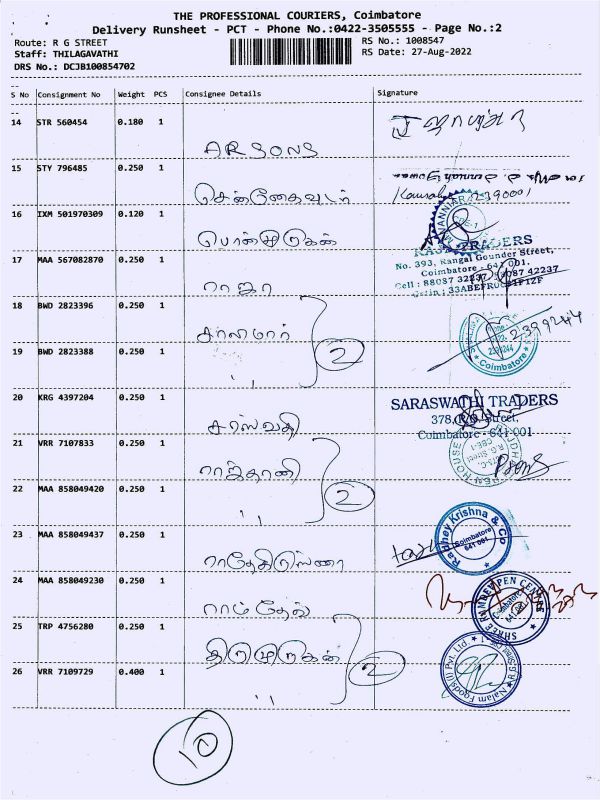 THE PROFESSIONAL COURIERS, Coimbatore
Delivery Runsheet - PCT - Phone No.:0422-3505555 - Page No.:2
Route: R G STREET
RS No.: 1008547
Staff: THILAGAVATHI
RS Date: 27-Aug-2022
DRS No.: DCJB100854702
S No Consignment No Weight PCS Consignee Details Signature
14 STR 560454 0.180 1
ARSONS
15 STY 796485 0.250 1
சென்னைவுடர்
2390001
16 IXM 501970309 0.120 1
பொன்முருகன்
RAJA TRADERS
No. 393, Rangai Gounder Street,
Coimbatore - 641 001.
17 MAA 567082870 0.250 1
Cell : 88087 32237, 88087 42237
ராஜா
18 BWD 2823396 0.250 1
சாலிமார்
2399244
2
19 BWD 2823388 0.250 1
,,
Coimbatore
20 KRG 4397204 0.250 1
சரஸ்வதி
SARASWATHI TRADERS
378, R.G. Street,
Coimbatore - 641 001
21 VRR 7107833 0.250 1
ராஜ்தானி
PEN HOUSE
2
22 MAA 858049420 0.250 1
,,
23 MAA 858049437 0.250 1
ராதேகிருஸ்ணா
Radhey Krishna & Co
Coimbatore
641 001
24 MAA 858049230 0.250 1
ராம்தேவ்
SHREE RAMDEV PEN CENTRE
Coimbatore
25 TRP 4756280 0.250 1
திருமுருகன்
2
26 VRR 7109729 0.400 1
,,
Nalam Foods (I) Pvt. Ltd.
10